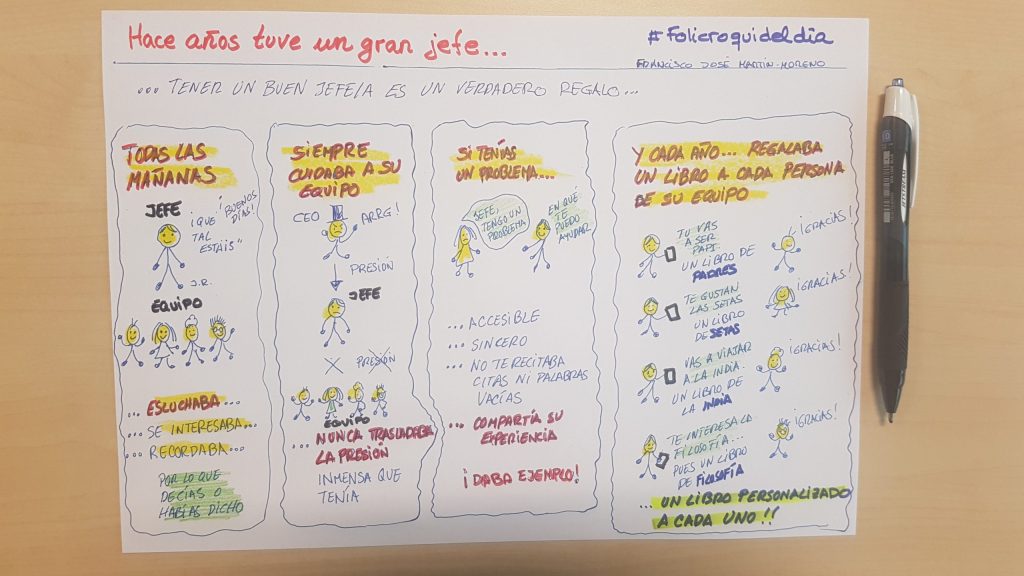 Hace años tuve un gran jefe...
#Folicroquideldia
FRANCISCO JOSÉ MARTÍN-MORENO
... TENER UN BUEN JEFE/A ES UN VERDADERO REGALO...
TODAS LAS
MAÑANAS
JEFE
¡BUENOS
DÍAS!
¡QUE
TAL
ESTAIS"
J.R.
EQUIPO
... ESCUCHABA...
... SE INTERESABA...
... RECORDABA...
POR LO QUE
DECÍAS O
HABÍAS DICHO
SIEMPRE
CUIDABA A SU
EQUIPO
CEO
ARRG!
PRESIÓN
JEFE
PRESIÓN
EQUIPO
... NUNCA TRASLADABA
LA PRESIÓN
INMENSA QUE
TENÍA
SI TENÍAS
UN PROBLEMA...
JEFE,
TENGO UN
PROBLEMA
EN QUÉ
TE
PUEDO
AYUDAR
... ACCESIBLE
... SINCERO
... NO TE RECITABA
CITAS NI PALABRAS
VACÍAS
... COMPARTÍA SU
EXPERIENCIA
¡DABA EJEMPLO!
Y CADA AÑO... REGALABA
UN LIBRO A CADA PERSONA
DE SU EQUIPO
TU VAS
A SER
PAPI.
UN LIBRO DE
PADRES
¡GRACIAS!
TE GUSTAN
LAS SETAS
UN LIBRO
DE SETAS
¡GRACIAS!
VAS A VIAJAR
A LA INDIA.
UN LIBRO DE
LA INDIA
¡GRACIAS!
TE INTERESA LA
FILOSOFÍA...
PUES UN LIBRO
DE FILOSOFÍA
¡GRACIAS!
... UN LIBRO PERSONALIZADO
A CADA UNO!!